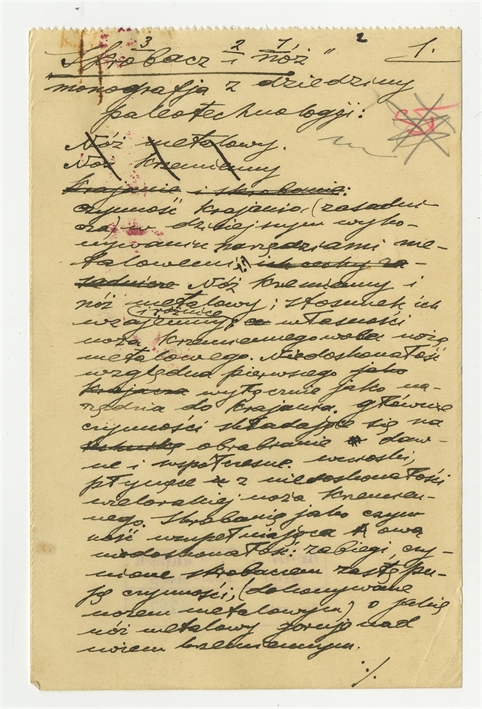 3 2 1 2 1.
"Skrobacz i nóż"
monografja z dziedziny
paleotechnologji:
Nóż metalowy.
Nóż krzemienny
krajanie i skrobanie:
czynność krajania, (zasadni-
cza) w dzisiejszym wyko-
nywaniu narzędziami me-
talowemi ich cechy za-
sadnicze Nóż krzemienny i
nóż metalowy; stosunek ich
i różnice
wzajemny; własności
noża krzemiennego wobec noża
metalowego. Niedoskonałość
względna pierwszego jako
wyłącznie jako na-
rzędzia do krajania. główne
czynności składające się na
obrabianie daw-
ne i współczesne. wnioski,
płynące z niedoskonałości
noża krzemien-
nego. Skrobanie jako czyn
ność uzupełniająca ową
niedoskonałość: zabiegi, czy-
nione skrobaczem zastępu-
ją czynności, (dokonywane
nożem metalowym) o jakie
nóż metalowy góruje nad
nożem krzemiennym.
./.